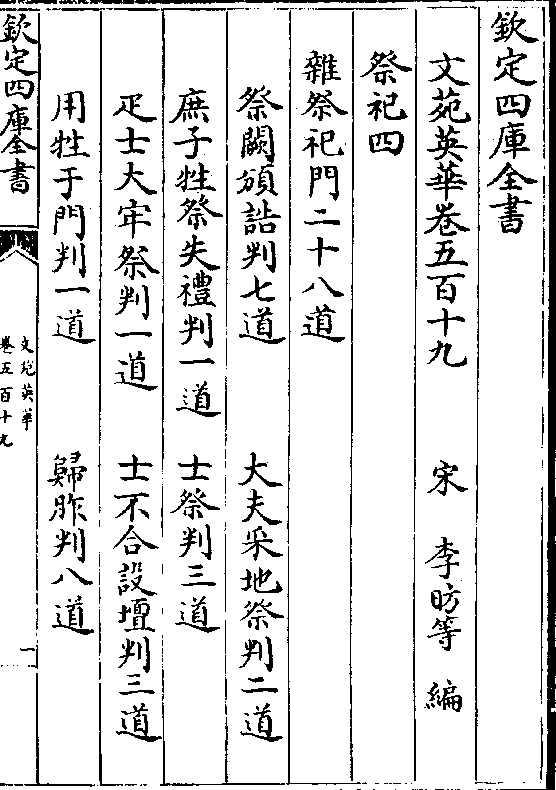 欽定四庫全書
文苑英華卷五百十九 宋 李昉等 編
祭祀四
雜祭祀門二十八道
祭闕頒誥判七道 大夫采地祭判二道
庶子牲祭失禮判一道 士祭判三道
疋士大牢祭判一道 士不合設壇判三道
用牲于門判一道 歸胙判八道
欽定四庫全書
文苑英華
卷五百十九
一